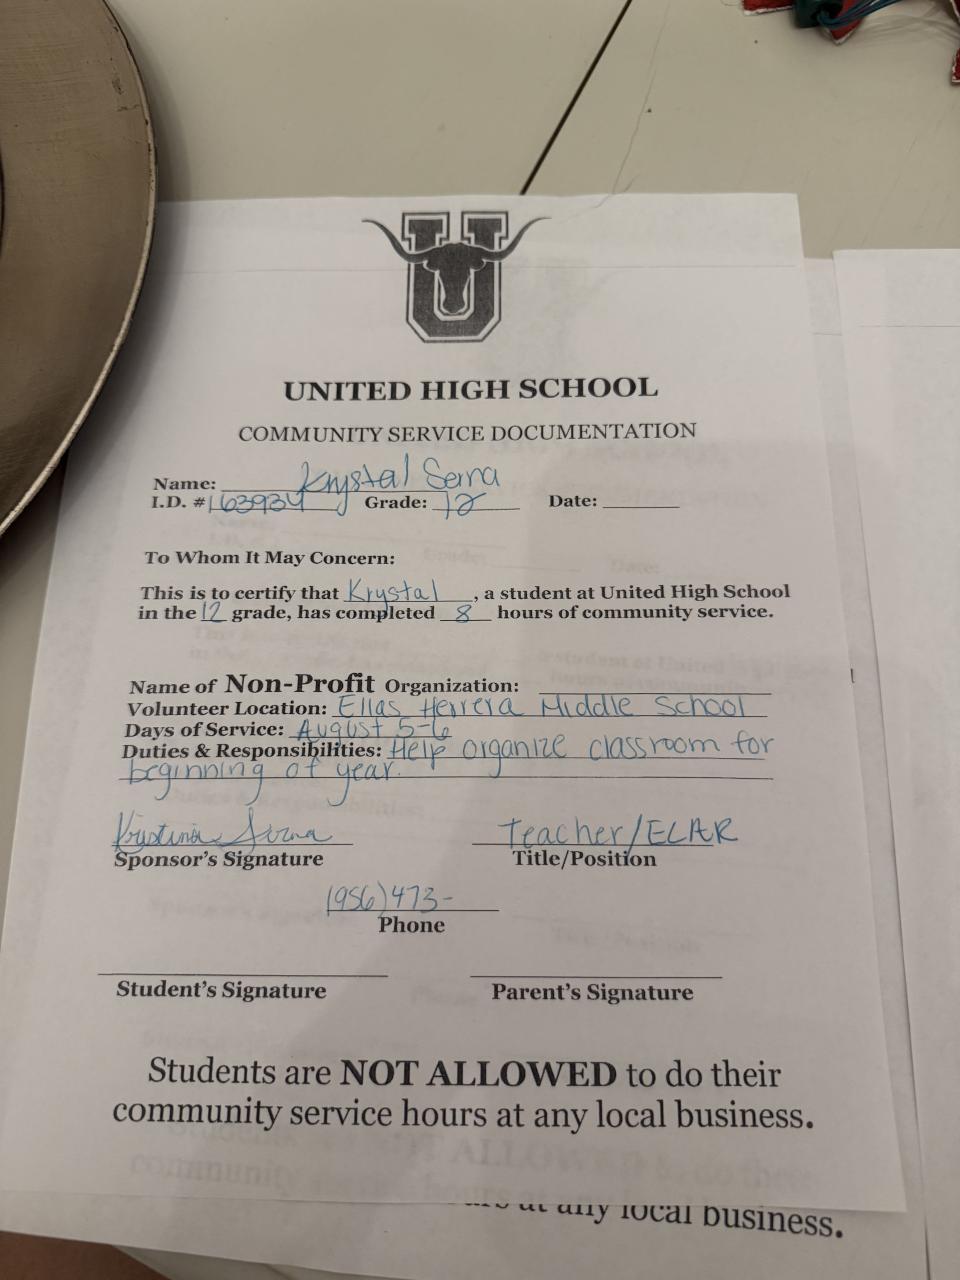 U
UNITED HIGH SCHOOL
COMMUNITY SERVICE DOCUMENTATION
Name: Krystal Serna
I.D. #163934 Grade: 12 Date:
To Whom It May Concern:
This is to certify that Krystal, a student at United High School
in the 12 grade, has completed 8 hours of community service.
Name of Non-Profit Organization:
Volunteer Location: Elias Herrera Middle School
Days of Service: August 5-6
Duties & Responsibilities: Help organize classroom for
beginning of year.
Kristina Serna Teacher/ELAR
Sponsor's Signature Title/Position
(956)473-
Phone
Student's Signature Parent's Signature
Students are NOT ALLOWED to do their
community service hours at any local business.
at any local business.